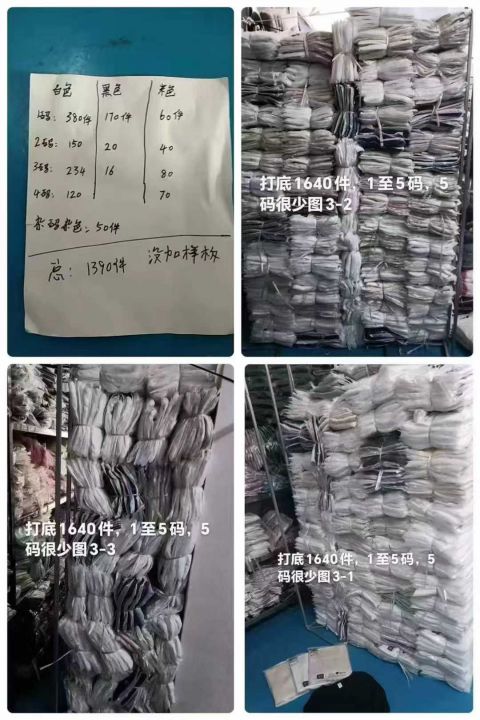 白色 黑色 杂色
1码: 380件 170件 60件
2码: 150 20 40
3码: 234 16 80
4码: 120 70
杂码杂色: 50件
总: 1390件 没加样板
打底1640件，1至5码，5
码很少图3-2
打底1640件，1至5码，5
码很少图3-3
打底1640件，1至5码，5
码很少图3-1